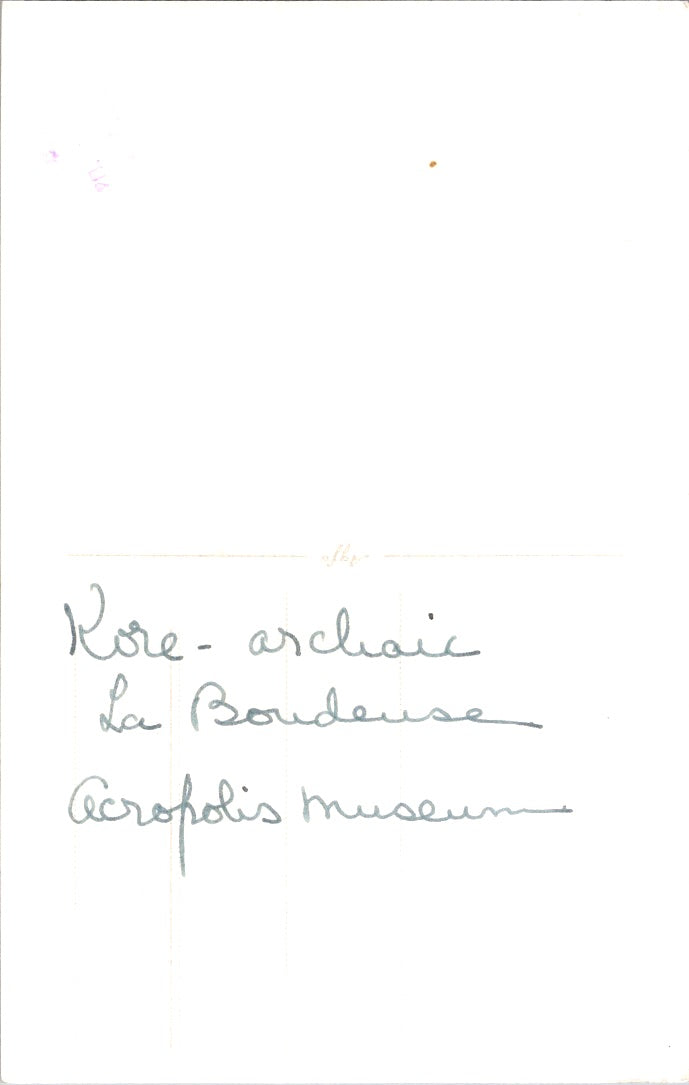 Kore - archaic
La Boudeuse
Acropolis Museum